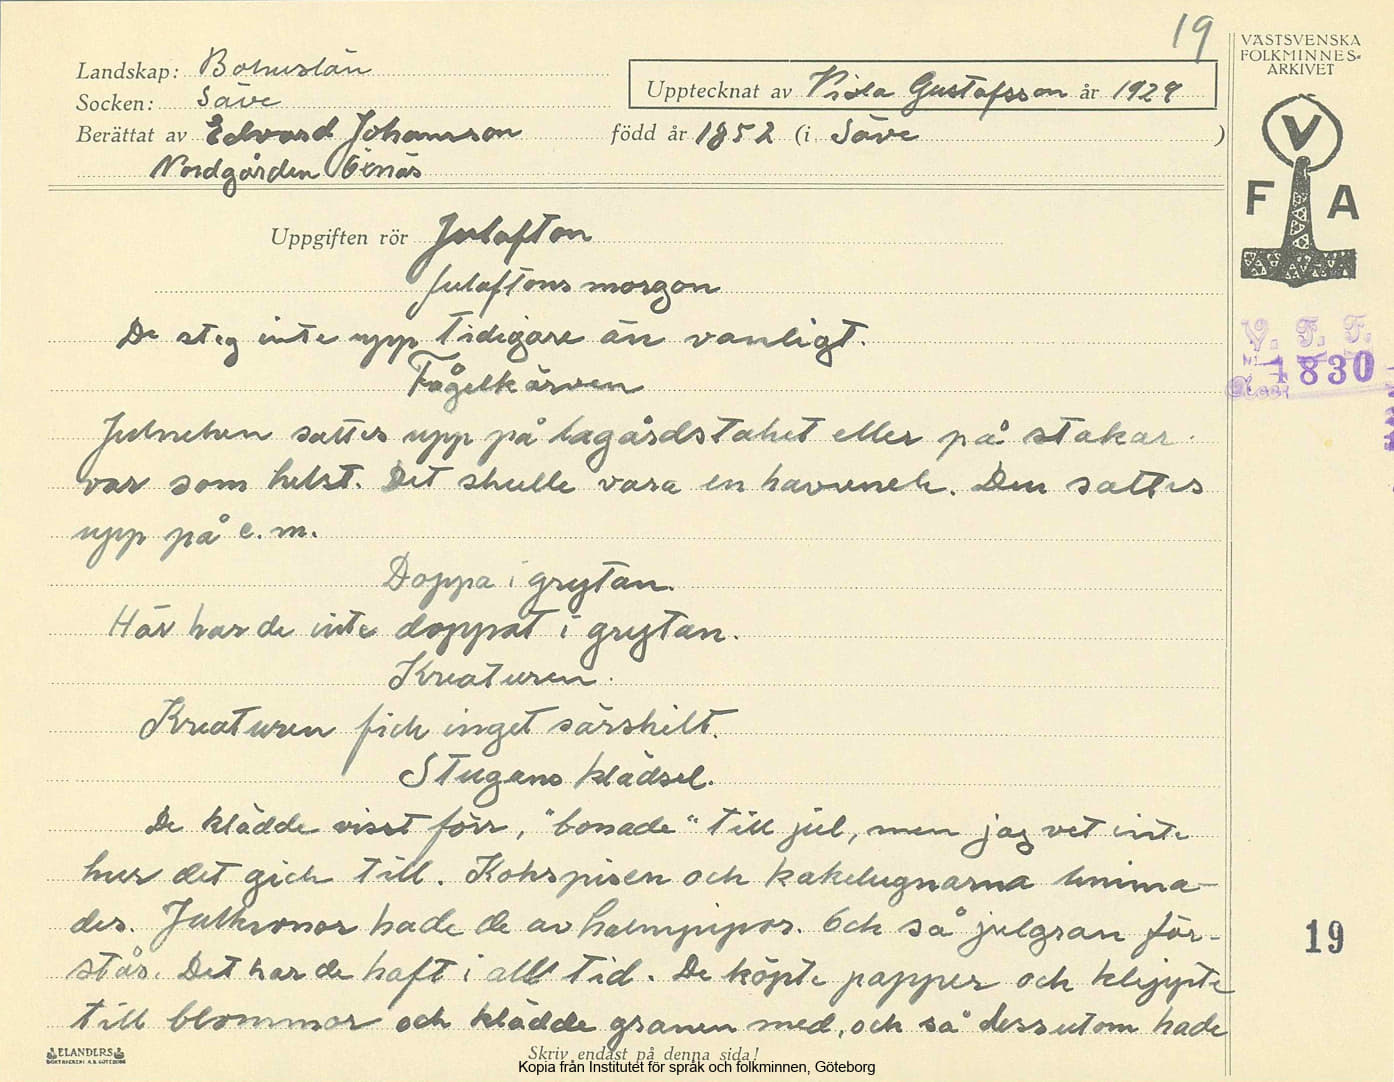 19
VÄSTSVENSKA
FOLKMINNES-
ARKIVET
Landskap: Bohuslän
Upptecknat av Viola Gustafsson år 1929
Socken: Säve
Berättat av Edvard Johansson född år 1852 (i Säve )
Nordgården Öxnäs
V
F A
Uppgiften rör Julafton
Julaftons morgon
De steg inte upp tidigare än vanligt.
V. F. F.
1830
Fågelkärven
Julneken sattes upp på lagårdstaket eller på stakar
var som helst. Det skulle vara en havrenek. Den sattes
upp på e.m.
Doppa i grytan.
Här har de inte doppat i grytan.
Kreaturen.
Kreaturen fick inget särskilt.
Stugans klädsel.
De klädde visst förr, "bonade" till jul, men jag vet inte
hur det gick till. Kokspisen och kakelugnarna limma-
des. Julkronor hade de av halmpipor. Och så julgran för-
stås. Det har de haft i all tid. De köpte papper och klippte
till blommor och klädde granen med, och så dessutom hade
19
ELANDERS
Skriv endast på denna sida!
Kopia från Institutet för språk och folkminnen, Göteborg